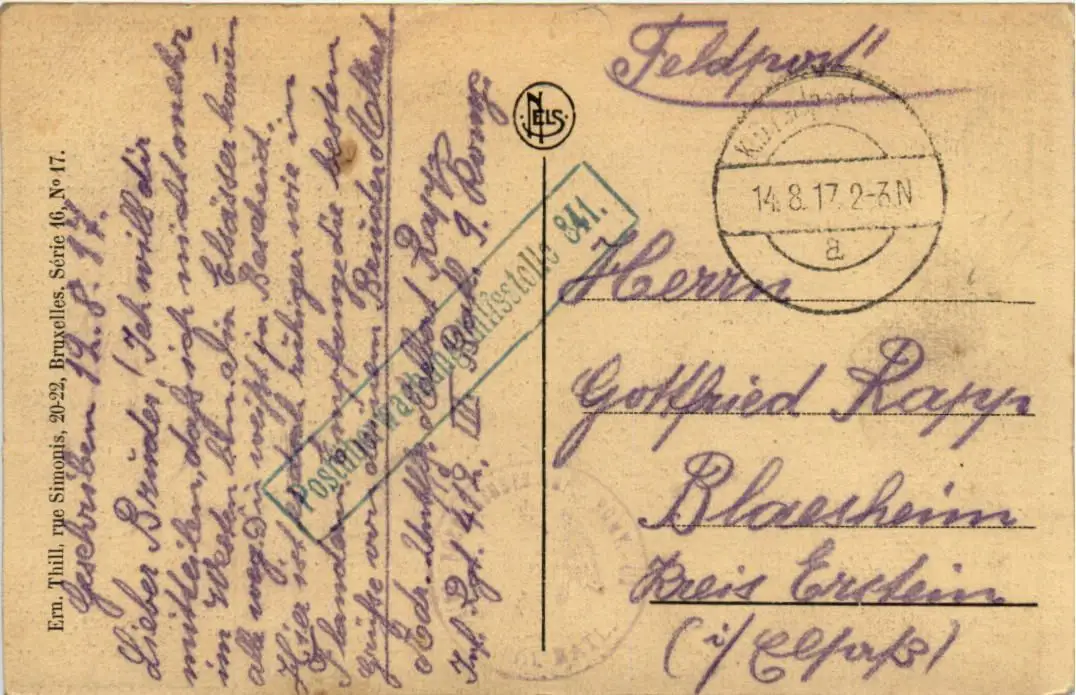 Ern. Thill, rue Simonis, 20-22, Bruxelles. Série 16, Nº 17.
Geschrieben 12. 8. 17.
Lieber Bruder! Ich will dir
mitteilen, daß ich nicht mehr
im Westen bin. Die Elsässer kommen
alle weg. Du weißt ja Bescheid.
Hier ist es doch ruhiger wie in
Flandern. Empfange die besten
Grüße von deinem Bruder Albert
Adr. Albert Rapp
Inf. Rgt. 412. III. Batl. 9. Komp.
NELS
Postüberwachungsstelle 841.
"Feldpost"
14.8.17.2-3.N
a
Herrn
Gottfried Rapp
Blaesheim
Kreis Erstein
(i/ Elsaß)